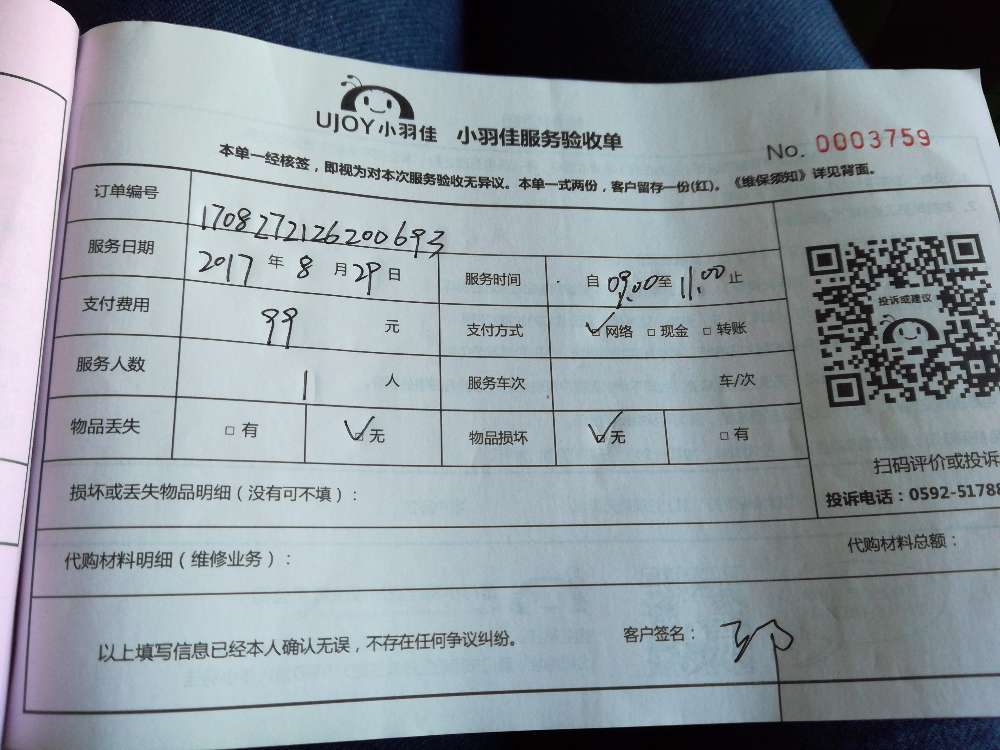 UJOY小羽佳 小羽佳服务验收单
No. 0003759
本单一经核签，即视为对本次服务验收无异议。本单一式两份，客户留存一份(红)。《维保须知》详见背面。
订单编号 1708272126200693
服务日期 2017 年 8 月 29 日 服务时间 自 09:00 至 11:00 止
支付费用 99 元 支付方式 ☑网络 □现金 □转账
服务人数 1 人 服务车次 车/次
物品丢失 □ 有 ☑无 物品损坏 ☑无 □ 有
投诉或建议
扫码评价或投诉
投诉电话：0592-51788
损坏或丢失物品明细（没有可不填）：
代购材料明细（维修业务）： 代购材料总额：
以上填写信息已经本人确认无误，不存在任何争议纠纷。 客户签名：